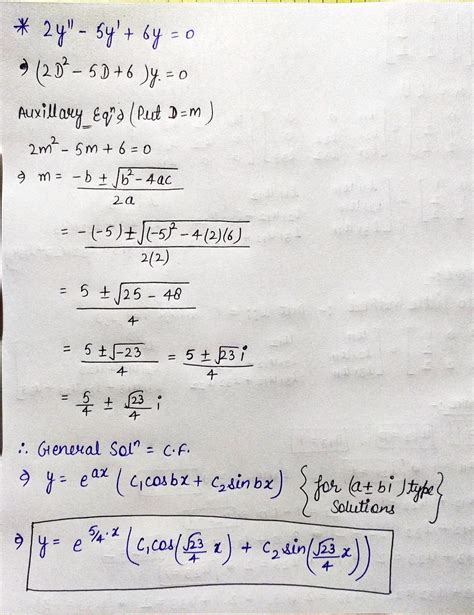 * 2y'' - 5y' + 6y = 0
⇒ (2D² - 5D + 6) y = 0
Auxillary Eqⁿ ⇒ (Put D = m)
2m² - 5m + 6 = 0
⇒ m = (-b ± √(b² - 4ac)) / 2a
= (-(-5) ± √((-5)² - 4(2)(6))) / 2(2)
= (5 ± √(25 - 48)) / 4
= (5 ± √-23) / 4 = (5 ± √23 i) / 4
= 5/4 ± √23/4 i
∴ General Solⁿ = C.F.
⇒ y = e^{ax} (C₁cosbx + C₂sinbx) {for (a ± bi) type solutions}
⇒ y = e^{5/4·x} (C₁cos(√23/4 x) + C₂sin(√23/4 x))